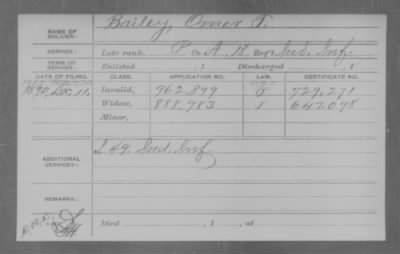 NAME OF SOLDIER: Bailey, Omer T.
SERVICE: Late rank, P Co. A, 18 Reg't Ind. Inf.
TERM OF SERVICE: Enlisted , 1 Discharged , 1
DATE OF FILING. CLASS. APPLICATION NO. LAW. CERTIFICATE NO.
1890, Dec. 11, Invalid, 962.899 729.271
Widow, 888.783 647.098
Minor,
ADDITIONAL SERVICES: S 49. Ind. Inf.
REMARKS:
Died , 1 , at